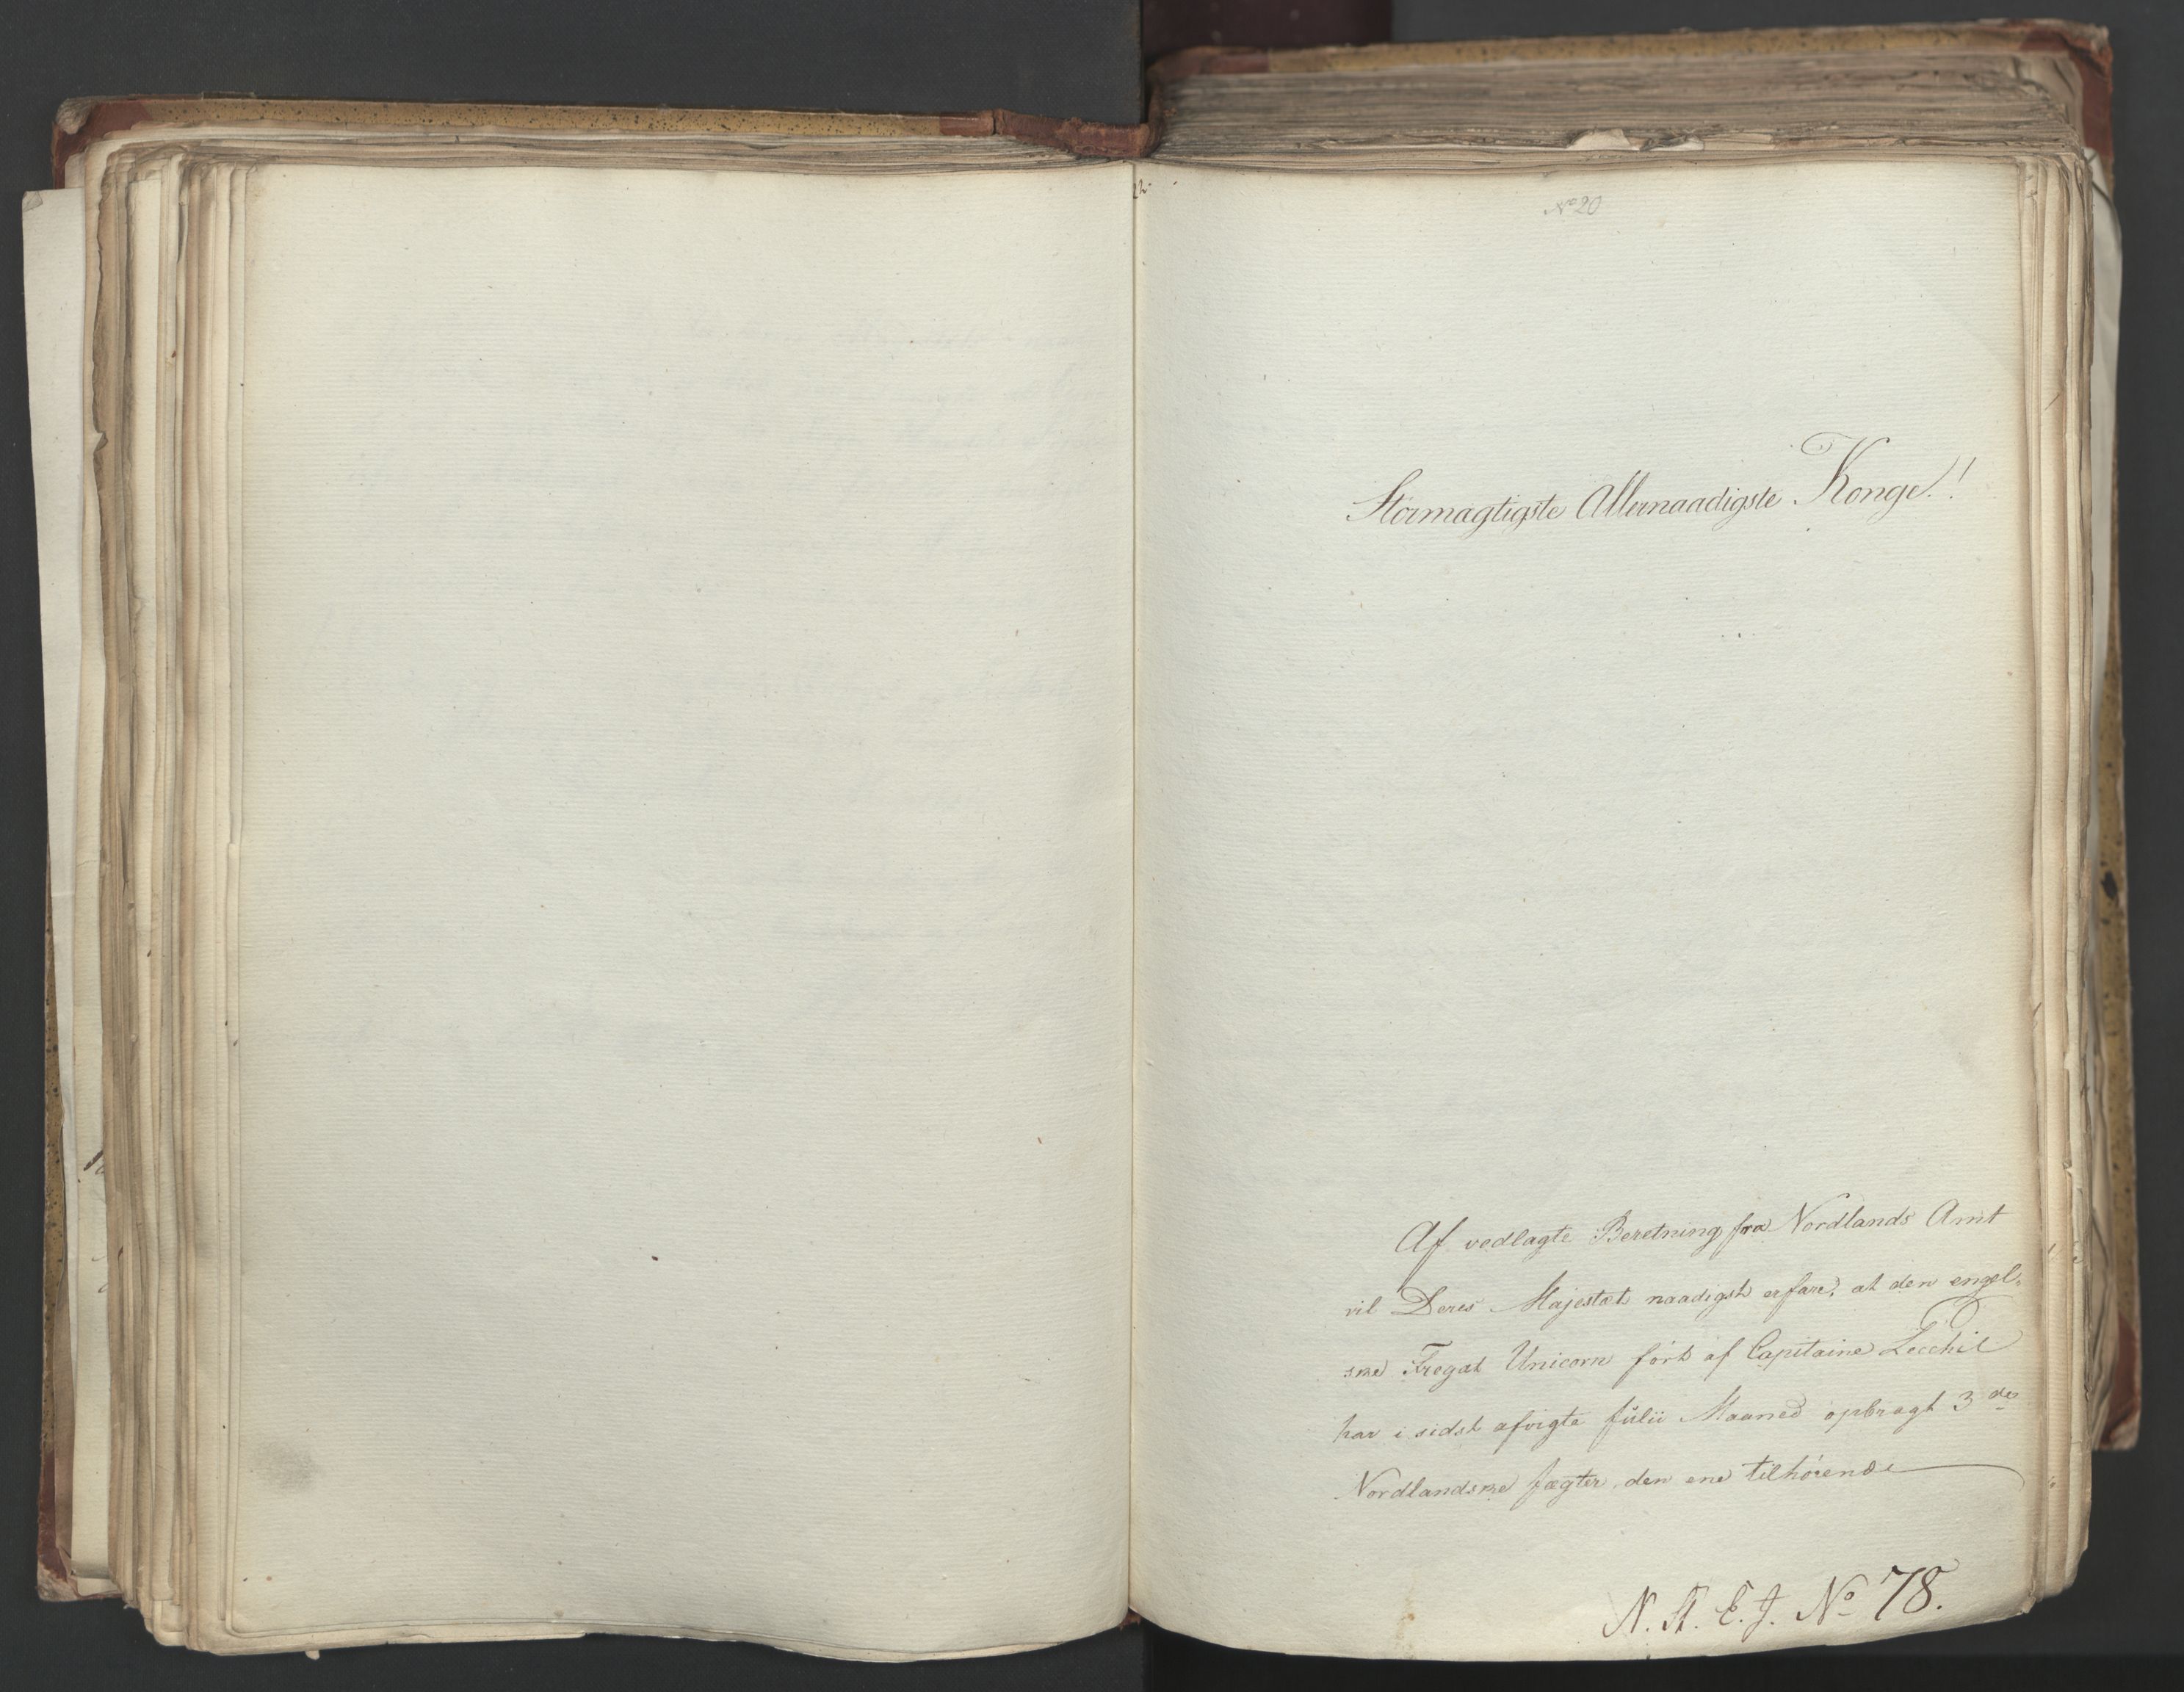 No 20
Stormagtigste Allernaadigste Konge!
Af vedlagte Beretning fra Nordlands Amt
vil Deres Majestæt naadigst erfare, at den engel-
ske Fregat Unicorn ført af Capitaine
har i sidst afvigte Julii Maaned opbragt 3 de
Nordlandske Jægter, den ene tilhørende
N. St. E. J. No 78.